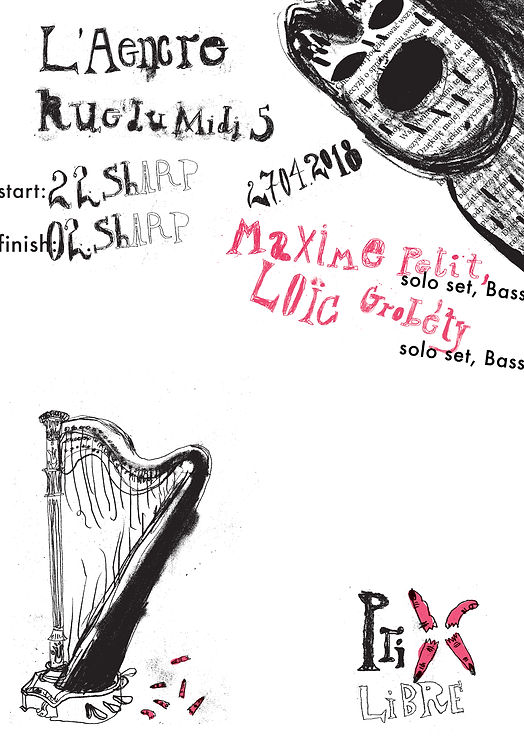 L'Aencre
Rue du Midi 5
start: 22.ShARP
finish: 02.ShARP
27.04.2018
Maxime Petit,
solo set, Bass
Loïc Grobéty
solo set, Bass
PriX
LiBRE